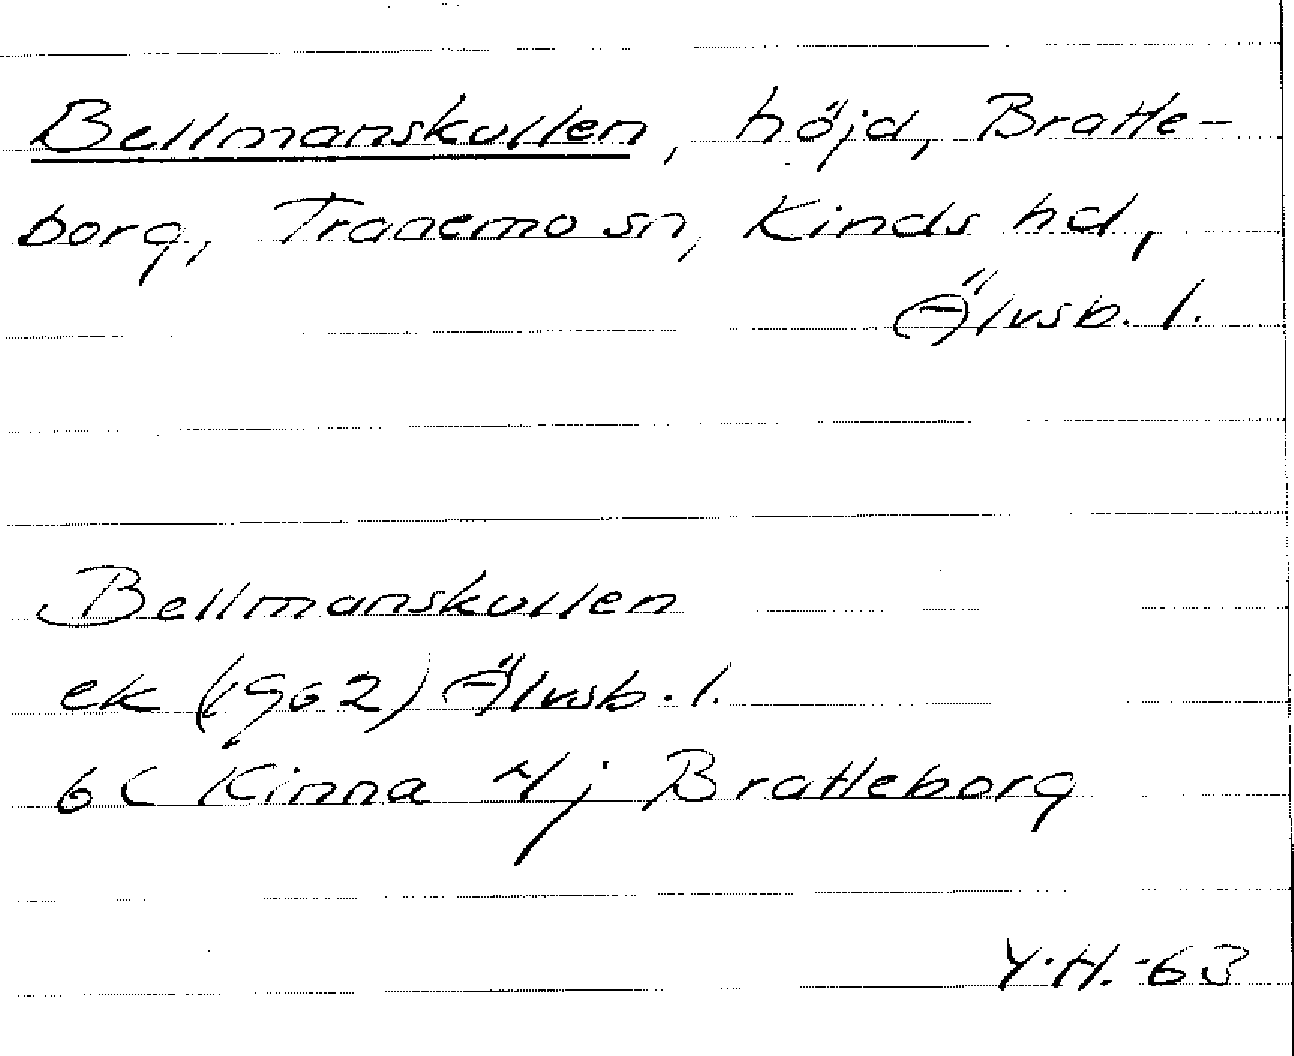 Bellmanskullen, höjd, Bratte-
borg, Tranemo sn, Kinds hd,
Älvsb. l.
Bellmanskullen
ek (1962) Älvsb. l.
6C Kinna 4j Bratteborg
Y.H. -63